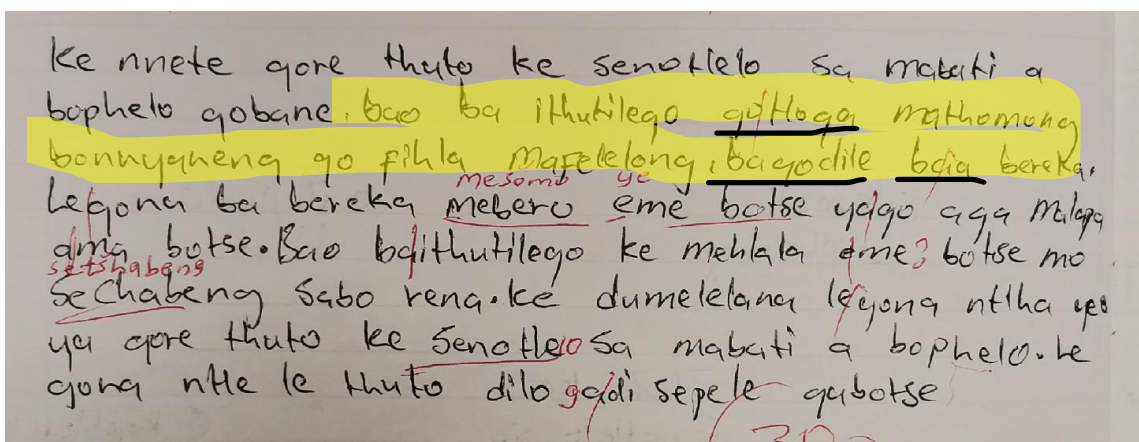 Ke nnete gore thuto ke senotlelo sa mabati a
bophelo gobane. bao ba ithutilego go tloga mathomong
bonnyaneng go fihla mafelelong, bagodile baia bereka.
mesomo ye
Le gona ba bereka mebero eme botse yago aga malapa
ama botse. Bao baithutilego ke mehlala eme botse mo
setshabeng
Sechabeng sabo rena. ke dumelelana le yona ntlha yeo
ya gore thuto ke Senotleo Sa mabati a bophelo. Le
gona ntle le thuto dilo gadi sepele gabotse